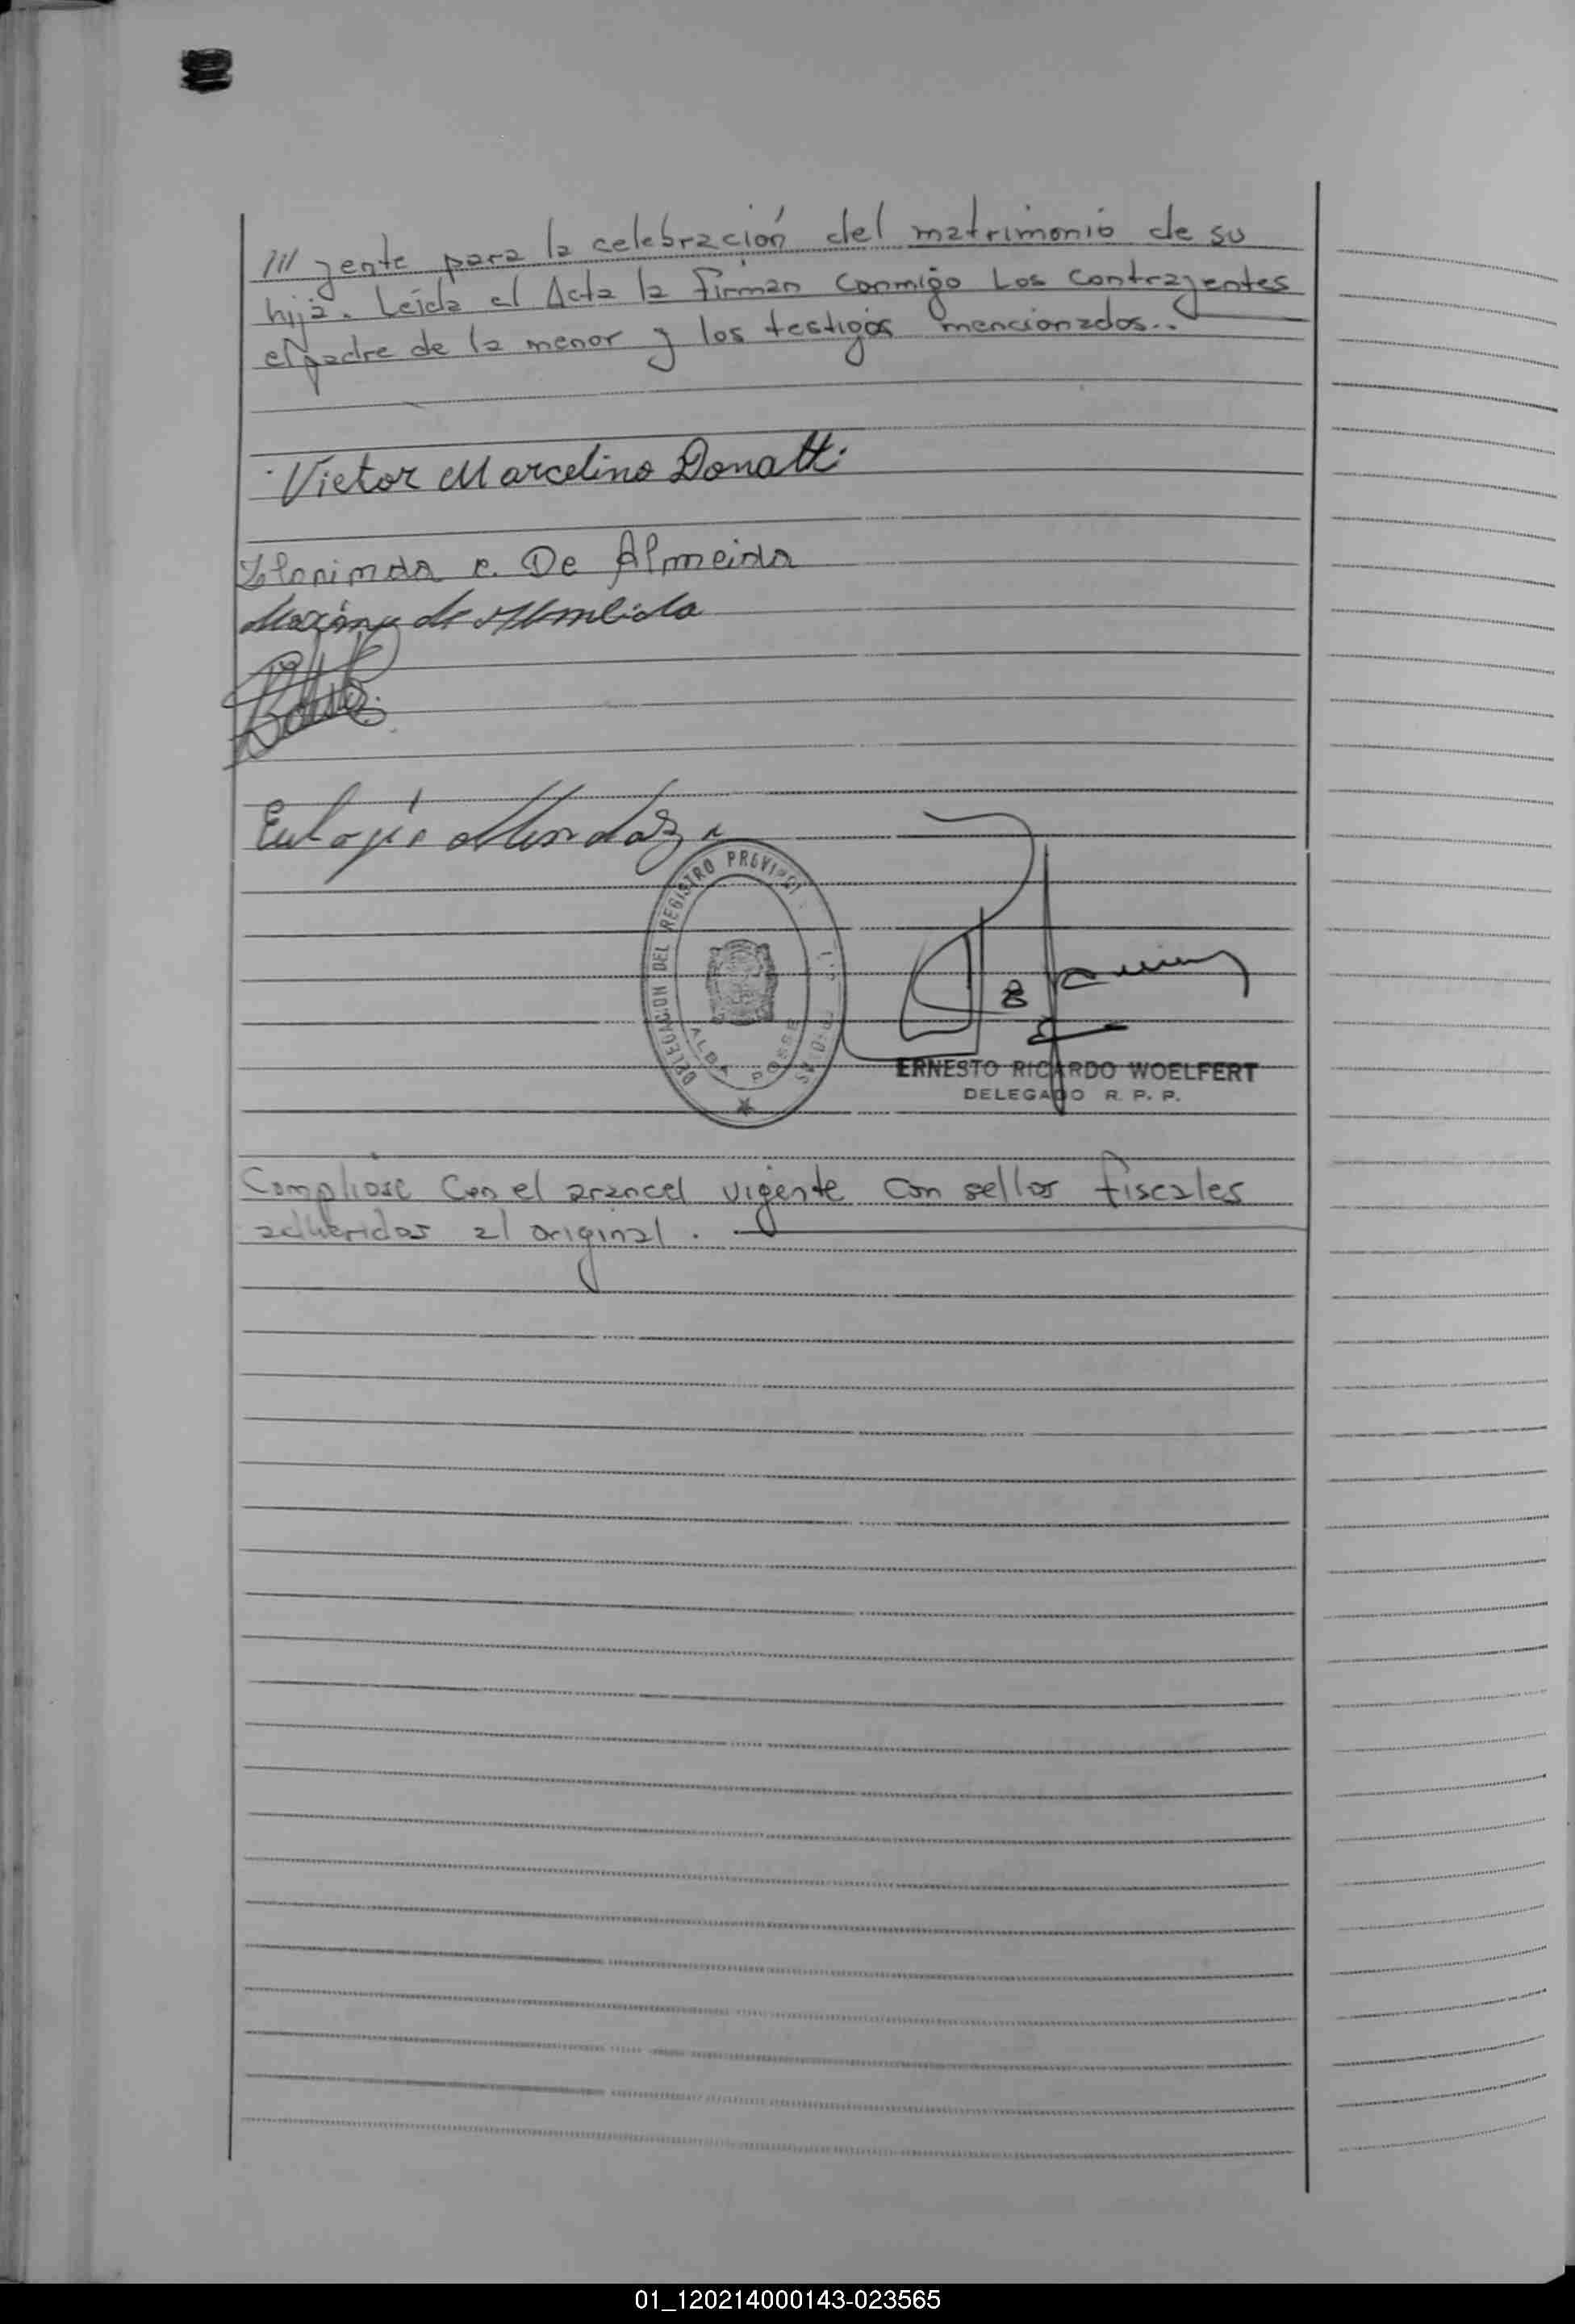 /// yente para la celebración del matrimonio de su
hija. Leída el Acta la firman conmigo Los contrayentes
el padre de la menor y los testigos mencionados..
Victor Marcelino Donatti
De Almeida
de Almeida
Eulogio
DELEGACION DEL REGISTRO
ALBA POSSE
ERNESTO RICARDO WOELFERT
DELEGADO R. P. P.
Complióse Con el arancel vigente con sellos fiscales
adheridos al original.
01_120214000143-023565